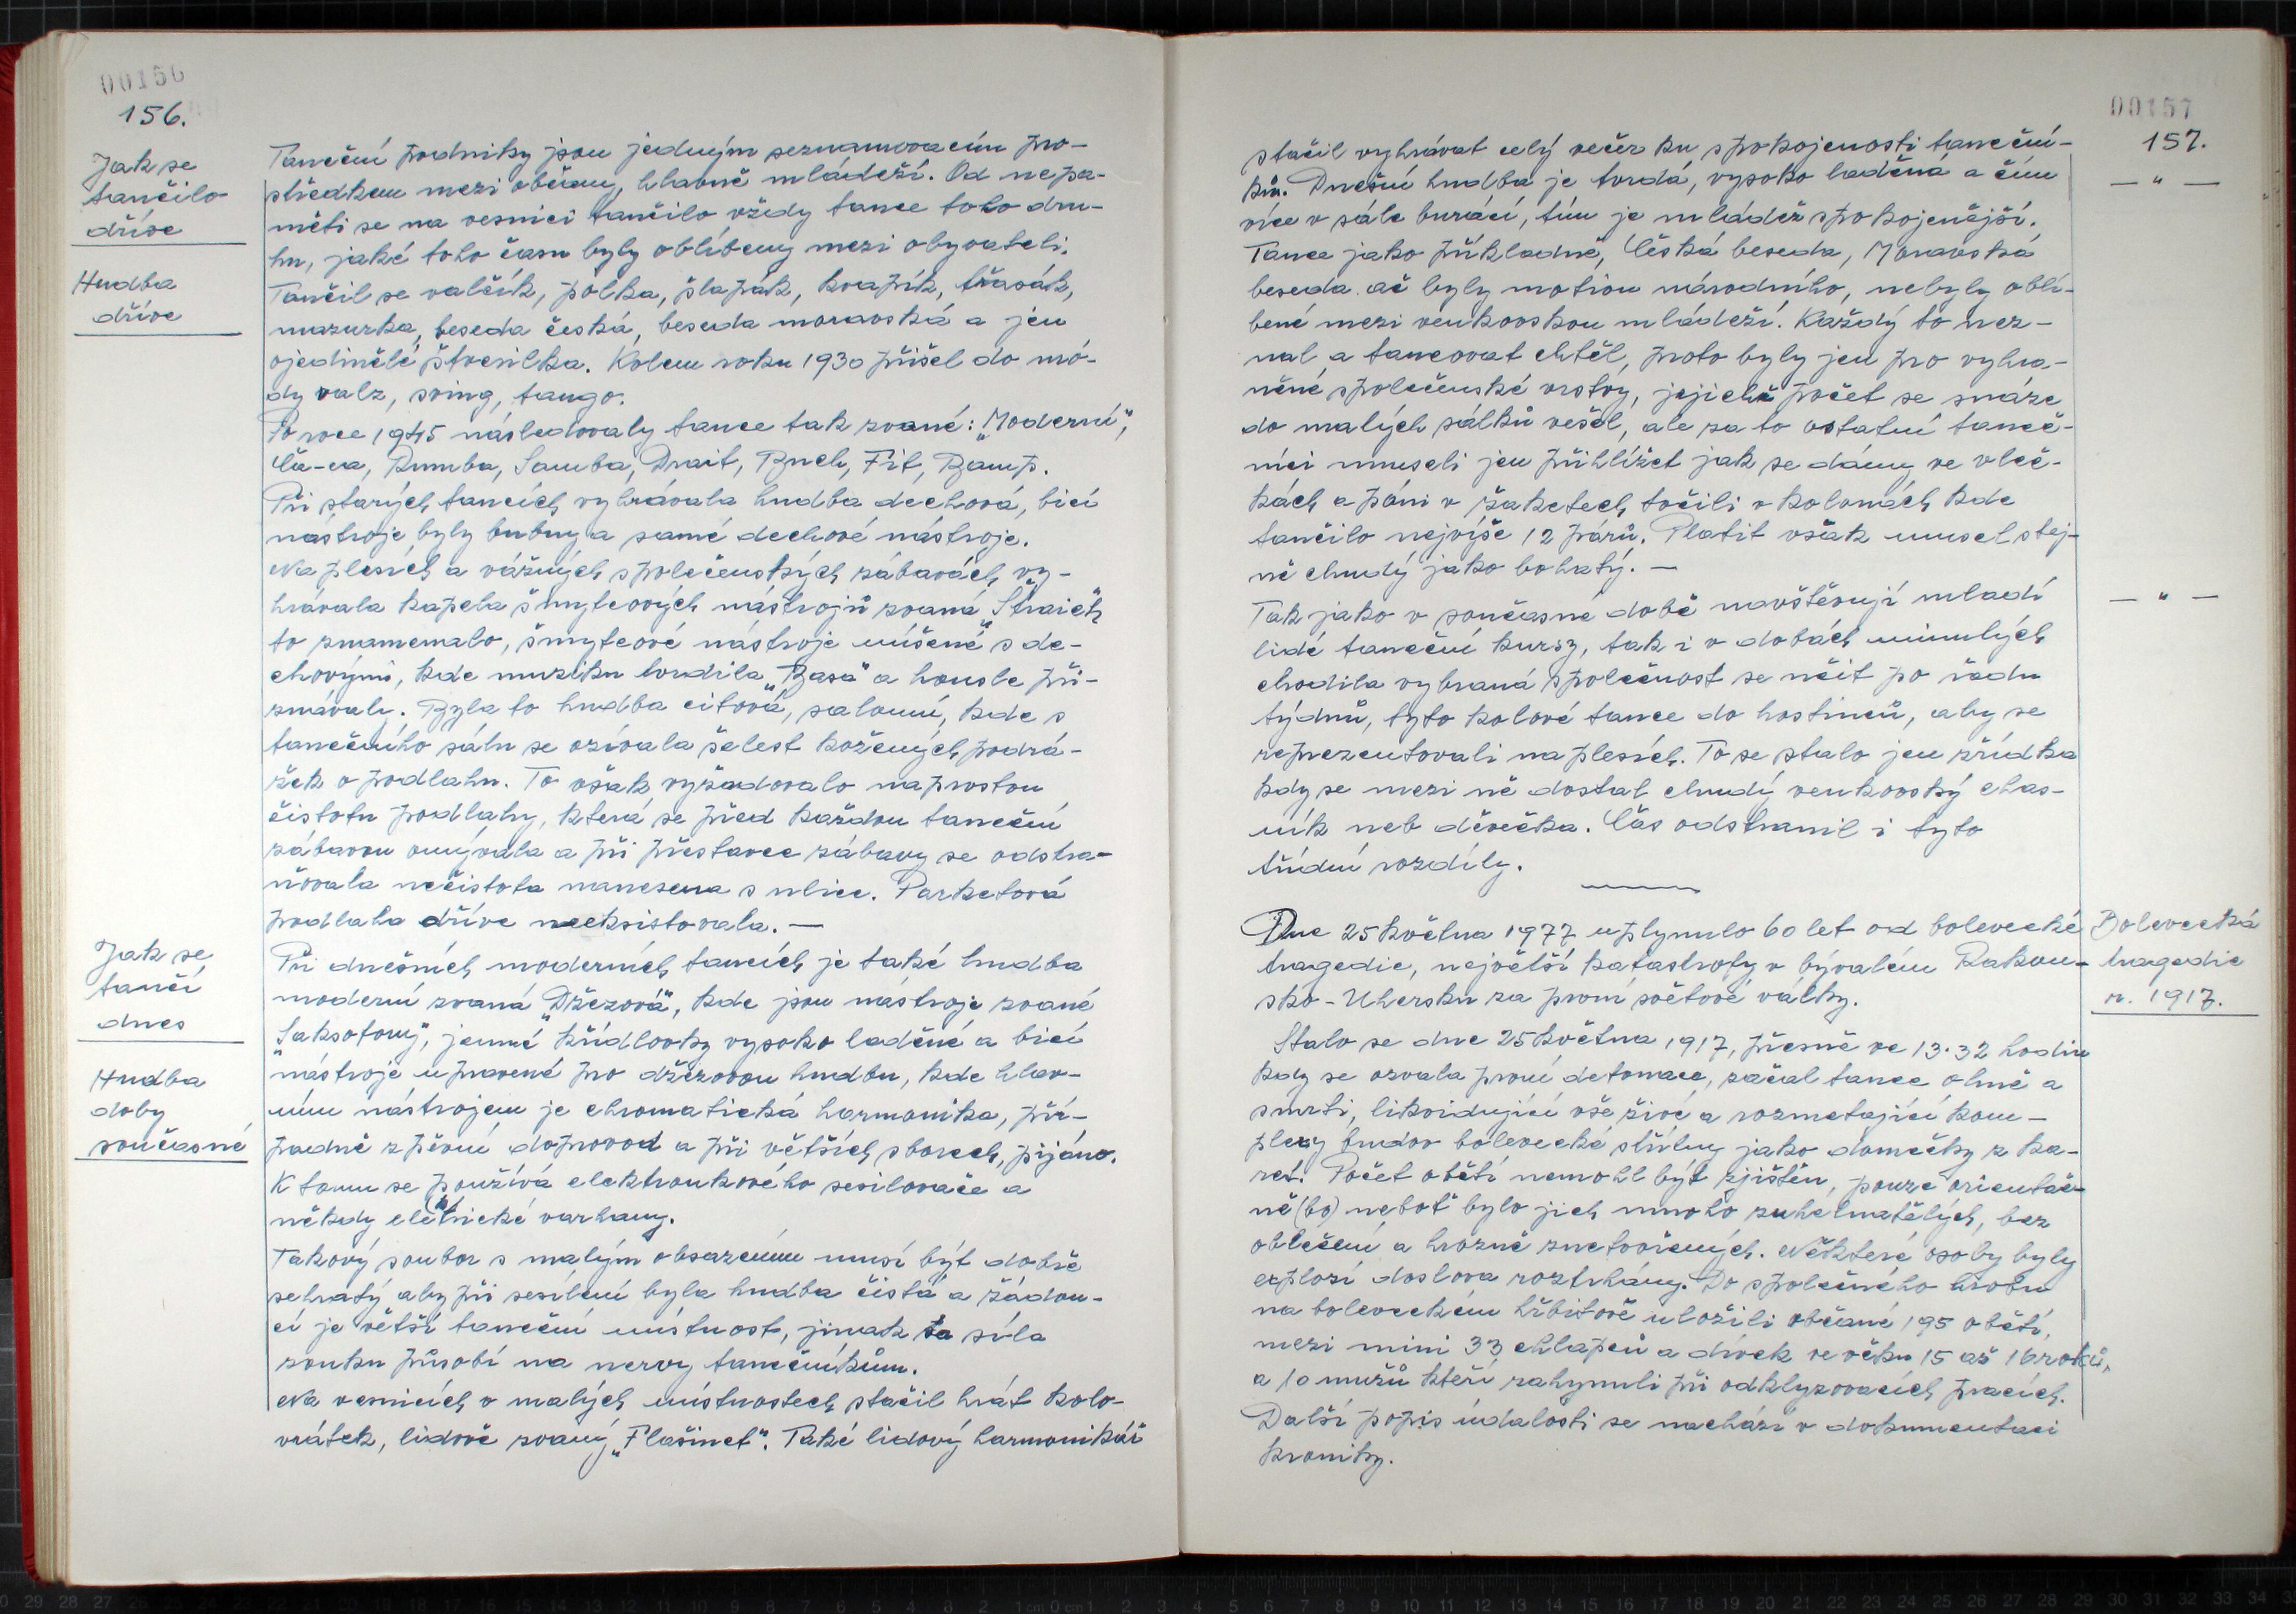 00156
156.
Jak se
tančilo
dříve
Hudba
dříve
Taneční podniky jsou jediným seznamovacím pro-
středkem mezi občany, hlavně mládeží. Od nepa-
měti se na vesnici tančilo vždy tance toho dru-
hu, jaké toho času byly oblíbeny mezi obyvateli.
Tančil se valčík, polka, šlapák, kvapík, třasák,
mazurka, beseda česká, beseda moravská a jen
ojediněle štverilka. Kolem roku 1930 přišel do mó-
dy valz, sving, tango.
Po roce 1945 následovaly tance tak zvané: „Moderní“,
Ča-ca, Rumba, Samba, Drait, Buch, Fit, Bamp.
Při starých tancích vyhrávala hudba dechová, bicí
nástroje byly bubny a samé dechové nástroje.
Na plesích a vážných společenských zábavách vy-
hrávala kapela šmytcových nástrojů zvaná „Štraich“
to znamenalo, šmytcové nástroje míšené s de-
chovými, kde muziku tvrdila „Basa“ a housle při-
znávaly. Byla to hudba citová, salonní, kde s
tanečního sálu se ozívala šelest kožených podrá-
žek o podlahu. To však vyžadovalo naprostou
čistotu podlahy, která se před každou taneční
zábavou omývala a při přestavce zábavy se odstra-
ňovala nečistota nanesena s ulice. Parketová
podlaha dříve neeksistovala. —
Jak se
tančí
dnes
Hudba
doby
současné
Při dnešních moderních tancích je také hudba
moderní zvaná „Džezová“, kde jsou nástroje zvané
„Saksofony“, jemné křídlovky vysoko laděné a bicí
nástroje upravené pro džezovou hudbu, kde hlav-
ním nástrojem je chromatická harmonika, pří-
padně zpěvní doprovod a při větších sborech, pijáno.
K tomu se používá elektronkového sesilovače a
někdy eletrické varhany.
Takový soubor s malým obsazením musí být dobře
sehratý aby při sesílení byla hudba čistá a žádou-
cí je větší taneční místnost, jinak ta síla
zvuku působí na nervy tanečníkům.
Na vesnicích v malých místnostech stačil hrát kolo-
vrátek, lidově zvaný „Flašinet“. Také lidový harmonikář
00157
157.
— „ —
stačil vyhrávat celý večer ku spokojenosti taneční-
ků. Dnešní hudba je tvrdá, vysoko laděná a čím
více v sále burácí, tím je mládež spokojenější.
Tance jako příkladně, Česká beseda, Moravská
beseda ač byly motivu národního, nebyly oblí-
bené mezi venkovskou mládeží. Každý to nez-
nal a tancovat chtěl, proto byly jen pro vyhra-
něné společenské vrstvy, jejichž počet se snáze
do malých sálků vešel, ale za to ostatní taneč-
níci museli jen přihlížet jak se dámy ve vleč-
kách a páni v žaketech točili v kolonách kde
tančilo nejvýše 12 párů. Platit však musel stej-
ně chudý jako bohatý. —
— „ —
Tak jako v současné době navštěvují mladí
lidé taneční kursy, tak i v dobách minulých
chodila vybraná společnost se učit po řadu
týdnů, tyto kolové tance do hostinců, aby se
reprezentovali na plesích. To se stalo jen zřídka
kdy se mezi ně dostal chudý venkovský chas-
ník neb děvečka. Čas odstranil i tyto
třídní rozdíly.
Bolevecká
tragedie
r. 1917.
Dne 25 května 1977 uplynulo 60 let od bolevecké
tragedie, největší katastrofy v bývalém Rakou-
sko-Uhersku za první světové války.
Stalo se dne 25 května 1917, přesně ve 13.32 hodin
kdy se ozvala první detonace, začal tanec ohně a
smrti, likvidující vše živé a rozmetající kom-
plexy budov bolevecké střílny jako domečky z ka-
ret. Počet obětí nemohl být zjištěn, pouze orientač-
ně (bo) neboť bylo jich mnoho zuhelnatělých, bez
oblečení a hrozně znetvořených. Některé osoby byly
explozí doslova roztrhány. Do společného hrobu
na boleveckém hřbitově uložili občané 195 obětí,
mezi nimi 33 chlapců a dívek ve věku 15 až 16 roků,
a 10 mužů kteří zahynuli při odklyzovacích pracích.
Další popis událostí se nachází v dokumentaci
kroniky.